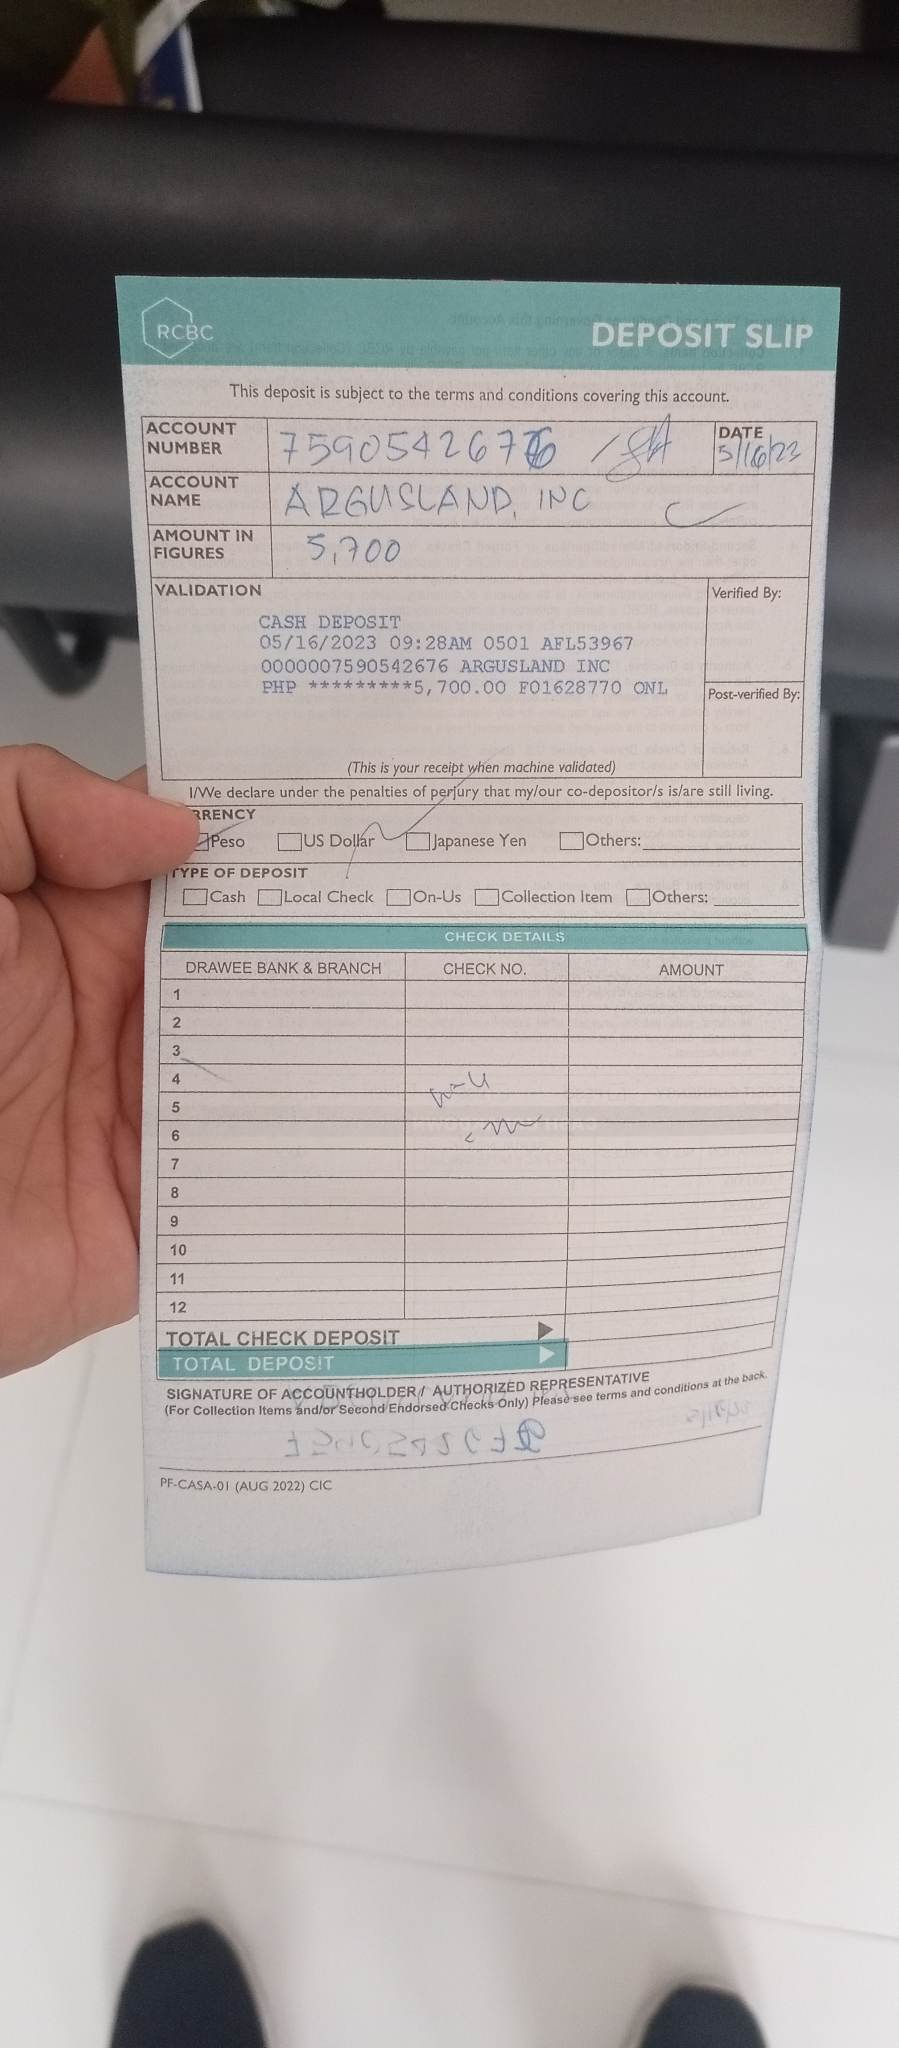 RCBC
DEPOSIT SLIP
This deposit is subject to the terms and conditions covering this account.
ACCOUNT NUMBER 7590542676 DATE 5/16/23
ACCOUNT NAME ARGUSLAND, INC
AMOUNT IN FIGURES 5,700
VALIDATION
Verified By:
CASH DEPOSIT
05/16/2023 09:28AM 0501 AFL53967
0000007590542676 ARGUSLAND INC
PHP *********5,700.00 F01628770 ONL
Post-verified By:
(This is your receipt when machine validated)
I/We declare under the penalties of perjury that my/our co-depositor/s is/are still living.
RRENCY
Peso US Dollar Japanese Yen Others:
TYPE OF DEPOSIT
Cash Local Check On-Us Collection Item Others:
CHECK DETAILS
DRAWEE BANK & BRANCH CHECK NO. AMOUNT
1
2
3
4
5
6
7
8
9
10
11
12
TOTAL CHECK DEPOSIT
TOTAL DEPOSIT
SIGNATURE OF ACCOUNTHOLDER / AUTHORIZED REPRESENTATIVE
(For Collection Items and/or Second Endorsed Checks Only) Please see terms and conditions at the back.
PF-CASA-01 (AUG 2022) CIC